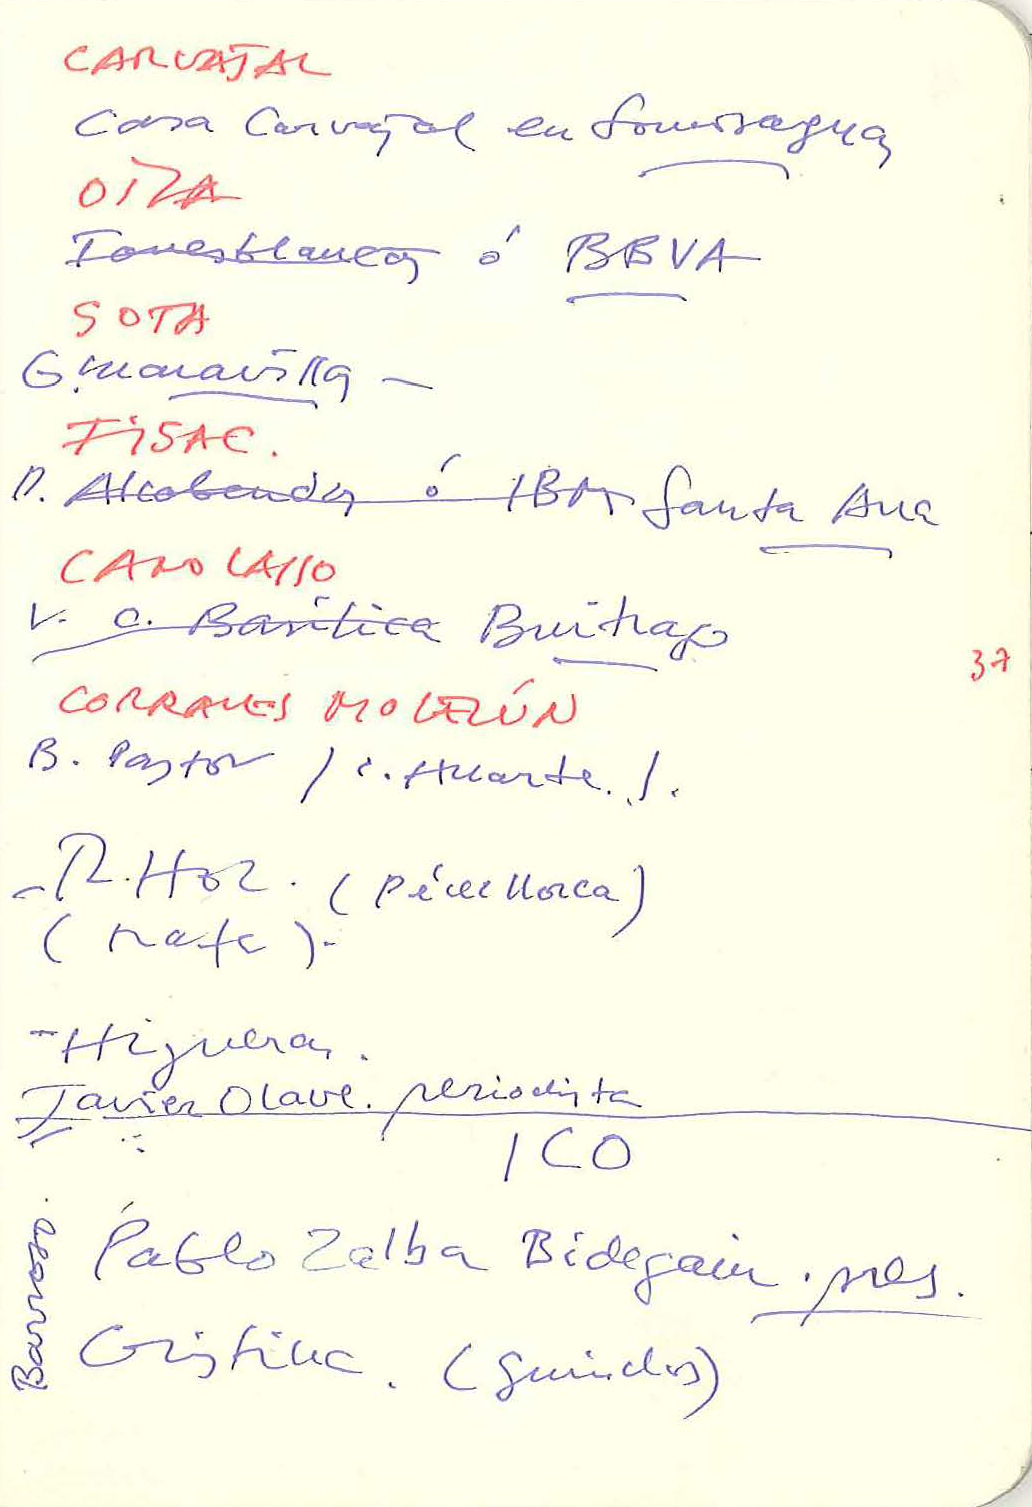 CARVAJAL
Casa Carvajal en Somosaguas
OIZA
Torresblancas ó BBVA
SOTA
G. Maravillas –
FISAC.
P. Alcobendas ó IBM Santa Ana
CANO LASSO
V. C. Basílica Buitrago
37
CORRALES MOLEZÚN
B. Pastor / C. Huarte. /.
- R. Hoz. (Pérez Llorca)
(Rafa).-
- Higueras.
Javier Olave. periodista
ICO
Pablo Zalba Bidegain. pres.
Cristina. (Guindos)
Barroso.